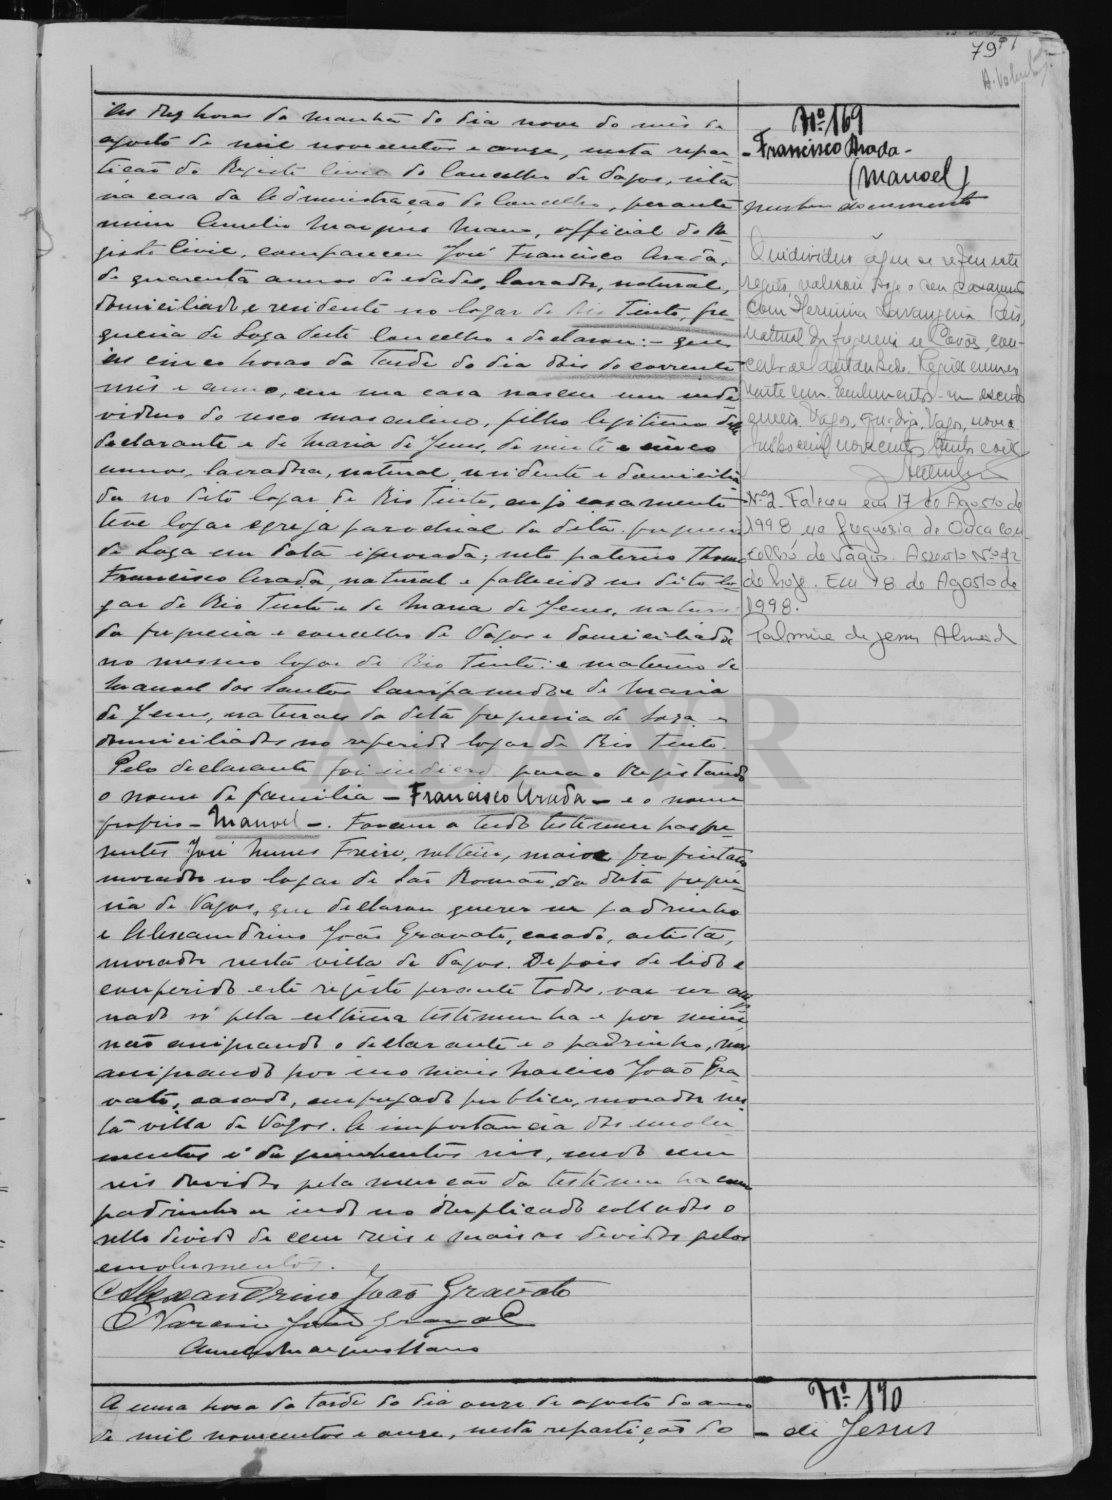 79
Nº 169
- Francisco Arada -
(Manoel)
As dez horas da manhã do dia nove do mês de
agosto de mil novecentos e onze, nesta repar
tição do Registo Civil do Concelho de Vagos, sita
na casa da Administração do Concelho, perante
mim Aurelio Marques Mano, official do Re
gisto Civil, compareceu José Francisco Arada,
de quarenta annos de edade, lavrador, natural,
domiciliado e residente no logar de Rio Tinto, fre
guezia de Soza deste concelho e declarou: - que
ás cinco horas da tarde do dia dois do corrente
mês e anno, em sua casa nasceu um indi
viduo do sexo masculino, filho legitimo delle
declarante e de Maria de Jesus, de vinte e cinco
annos, lavradora, natural, residente e domicilia
da no dito logar de Rio Tinto, cujo casamento
teve logar egreja parochial da dita freguezia
de Soza em data ignorada; neto paterno Thomé
Francisco Arada, natural e fallecido no dito lo
gar de Rio Tinto e de Maria de Jesus, natural
da freguezia e concelho de Vagos e domiciliada
no mesmo logar de Rio Tinto: e materno de
Manoel dos Santos e de Maria
de Jesus, naturaes da dita freguezia de Soza e
domiciliados no referido logar de Rio Tinto.
Pelo declarante foi indicado para o Registando
o nome de familia - Francisco Arada - e o nome
proprio - Manoel -. Foram a tudo testemunhas pre
sentes José Nunes Freire, solteiro, maior, proprietario
morador no logar de São Romão, da dita fregue
zia de Vagos, que declarou querer ser padrinho
e Alexandrino João Gravato, casado, artista,
morador nesta villa de Vagos. Depois de lido e
conferido este registo perante todos, vae ser assi
nado só pela ultima testemunha e por mim,
não assignando o declarante e o padrinho,
assignando por isso mais João Gra
vato, casado, empregado publico, morador nes
ta villa de Vagos. A importancia dos emolu
mentos é de quinhentos reis, sendo cem
reis devidos pela menção da testemunha como
padrinho e indo no duplicado collado o
sello devido de cem reis e mais os devidos pelos
emolumentos.
Alexandrino João Gravato
João Gravato
Aurelio Marques Mano
com Herminia
natural da freguesia de Covões, con-
Nº 2. Faleceu em 17 de Agosto de
1998, na freguesia de Ouca con-
celho de Vagos. Assento Nº
de hoje. Em 18 de Agosto de
1998.
de Jesus Almeida
Nº 170
- de Jesus
A uma hora da tarde do dia onze de agosto do anno
de mil novecentos e onze, nesta repartição do
ADAVR